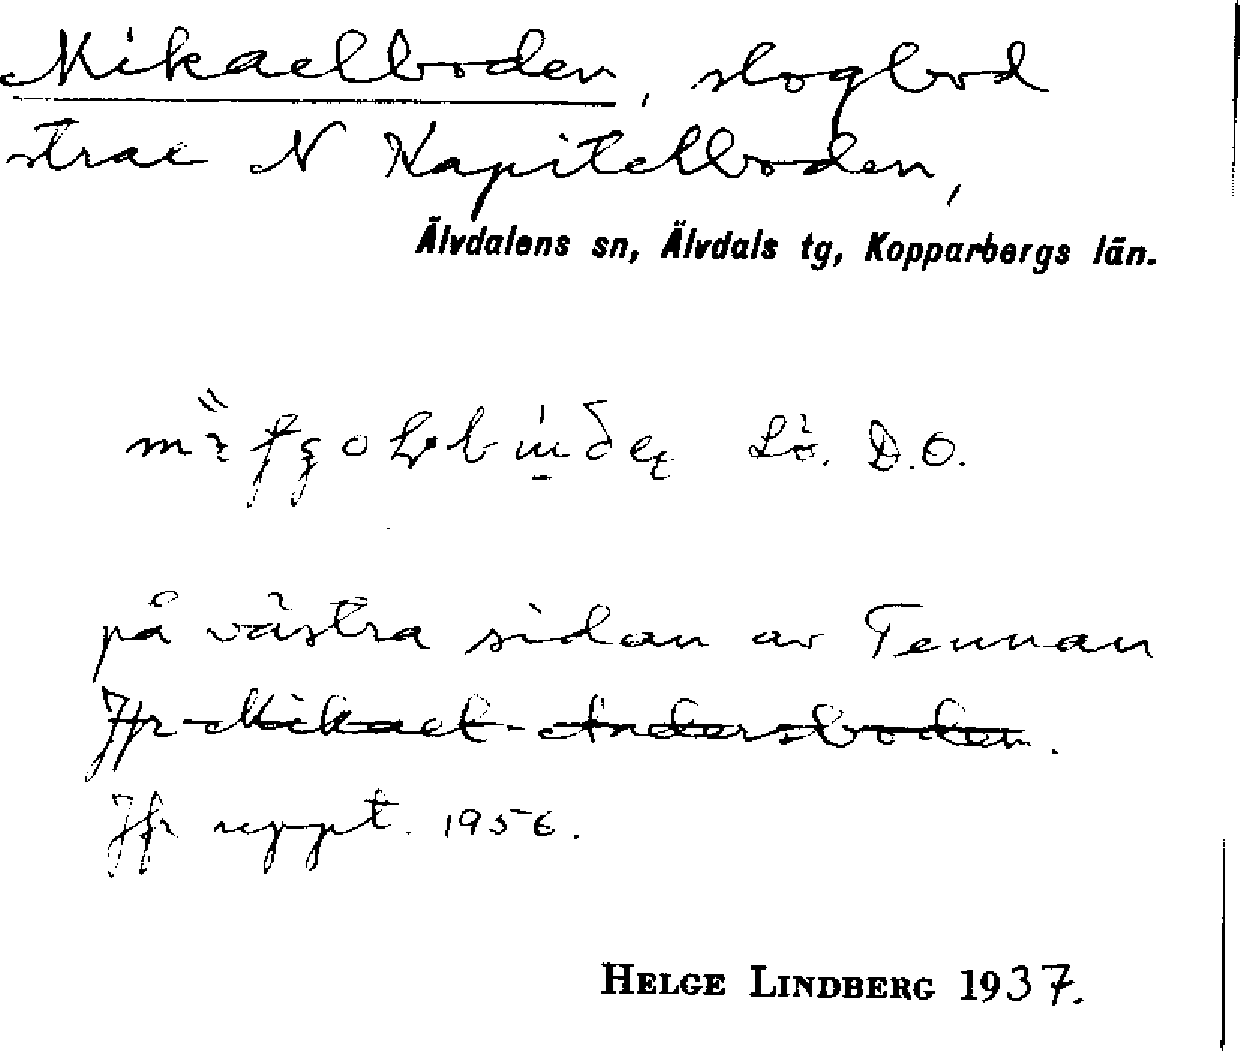 Mikaelboden, slogbod
strax N Kapitelboden,
Älvdalens sn, Älvdals tg, Kopparbergs län.
Lö. D.O.
på västra sidan av Tennan
Jfr Mikael-Andersboden.
Jfr uppt. 1956.
HELGE LINDBERG 1937.